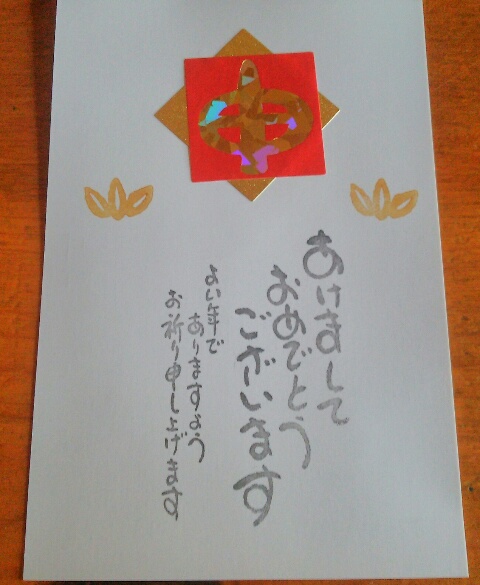 申
あけまして
おめでとう
ございます
よい年で
ありますよう
お祈り申し上げます